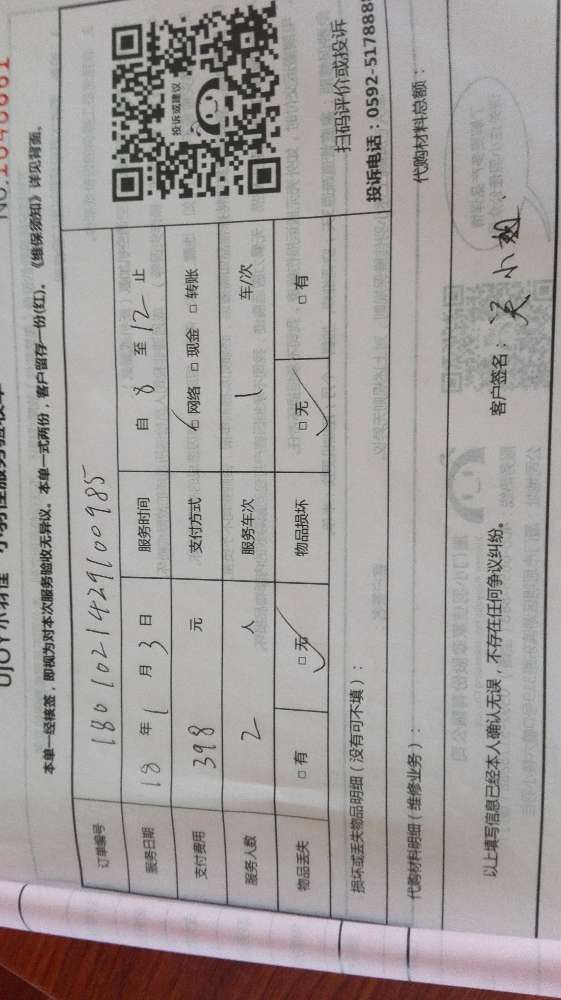 本单一经核签，即视为对本次服务验收无异议。本单一式两份，客户留存一份(红)。《维保须知》详见背面。
订单编号 1801021429100985
服务日期 18 年 1 月 3 日 服务时间 自 8 至 12 止
支付费用 398 元 支付方式 ☑ 网络 □ 现金 □ 转账
服务人数 2 人 服务车次 1 车/次
物品丢失 □ 有 ☑ 无 物品损坏 ☑ 无 □ 有
投诉或建议
扫码评价或投诉
投诉电话：0592-517888
损坏或丢失物品明细（没有可不填）：
代购材料明细（维修业务）： 代购材料总额：
以上填写信息已经本人确认无误，不存在任何争议纠纷。 客户签名：吴小